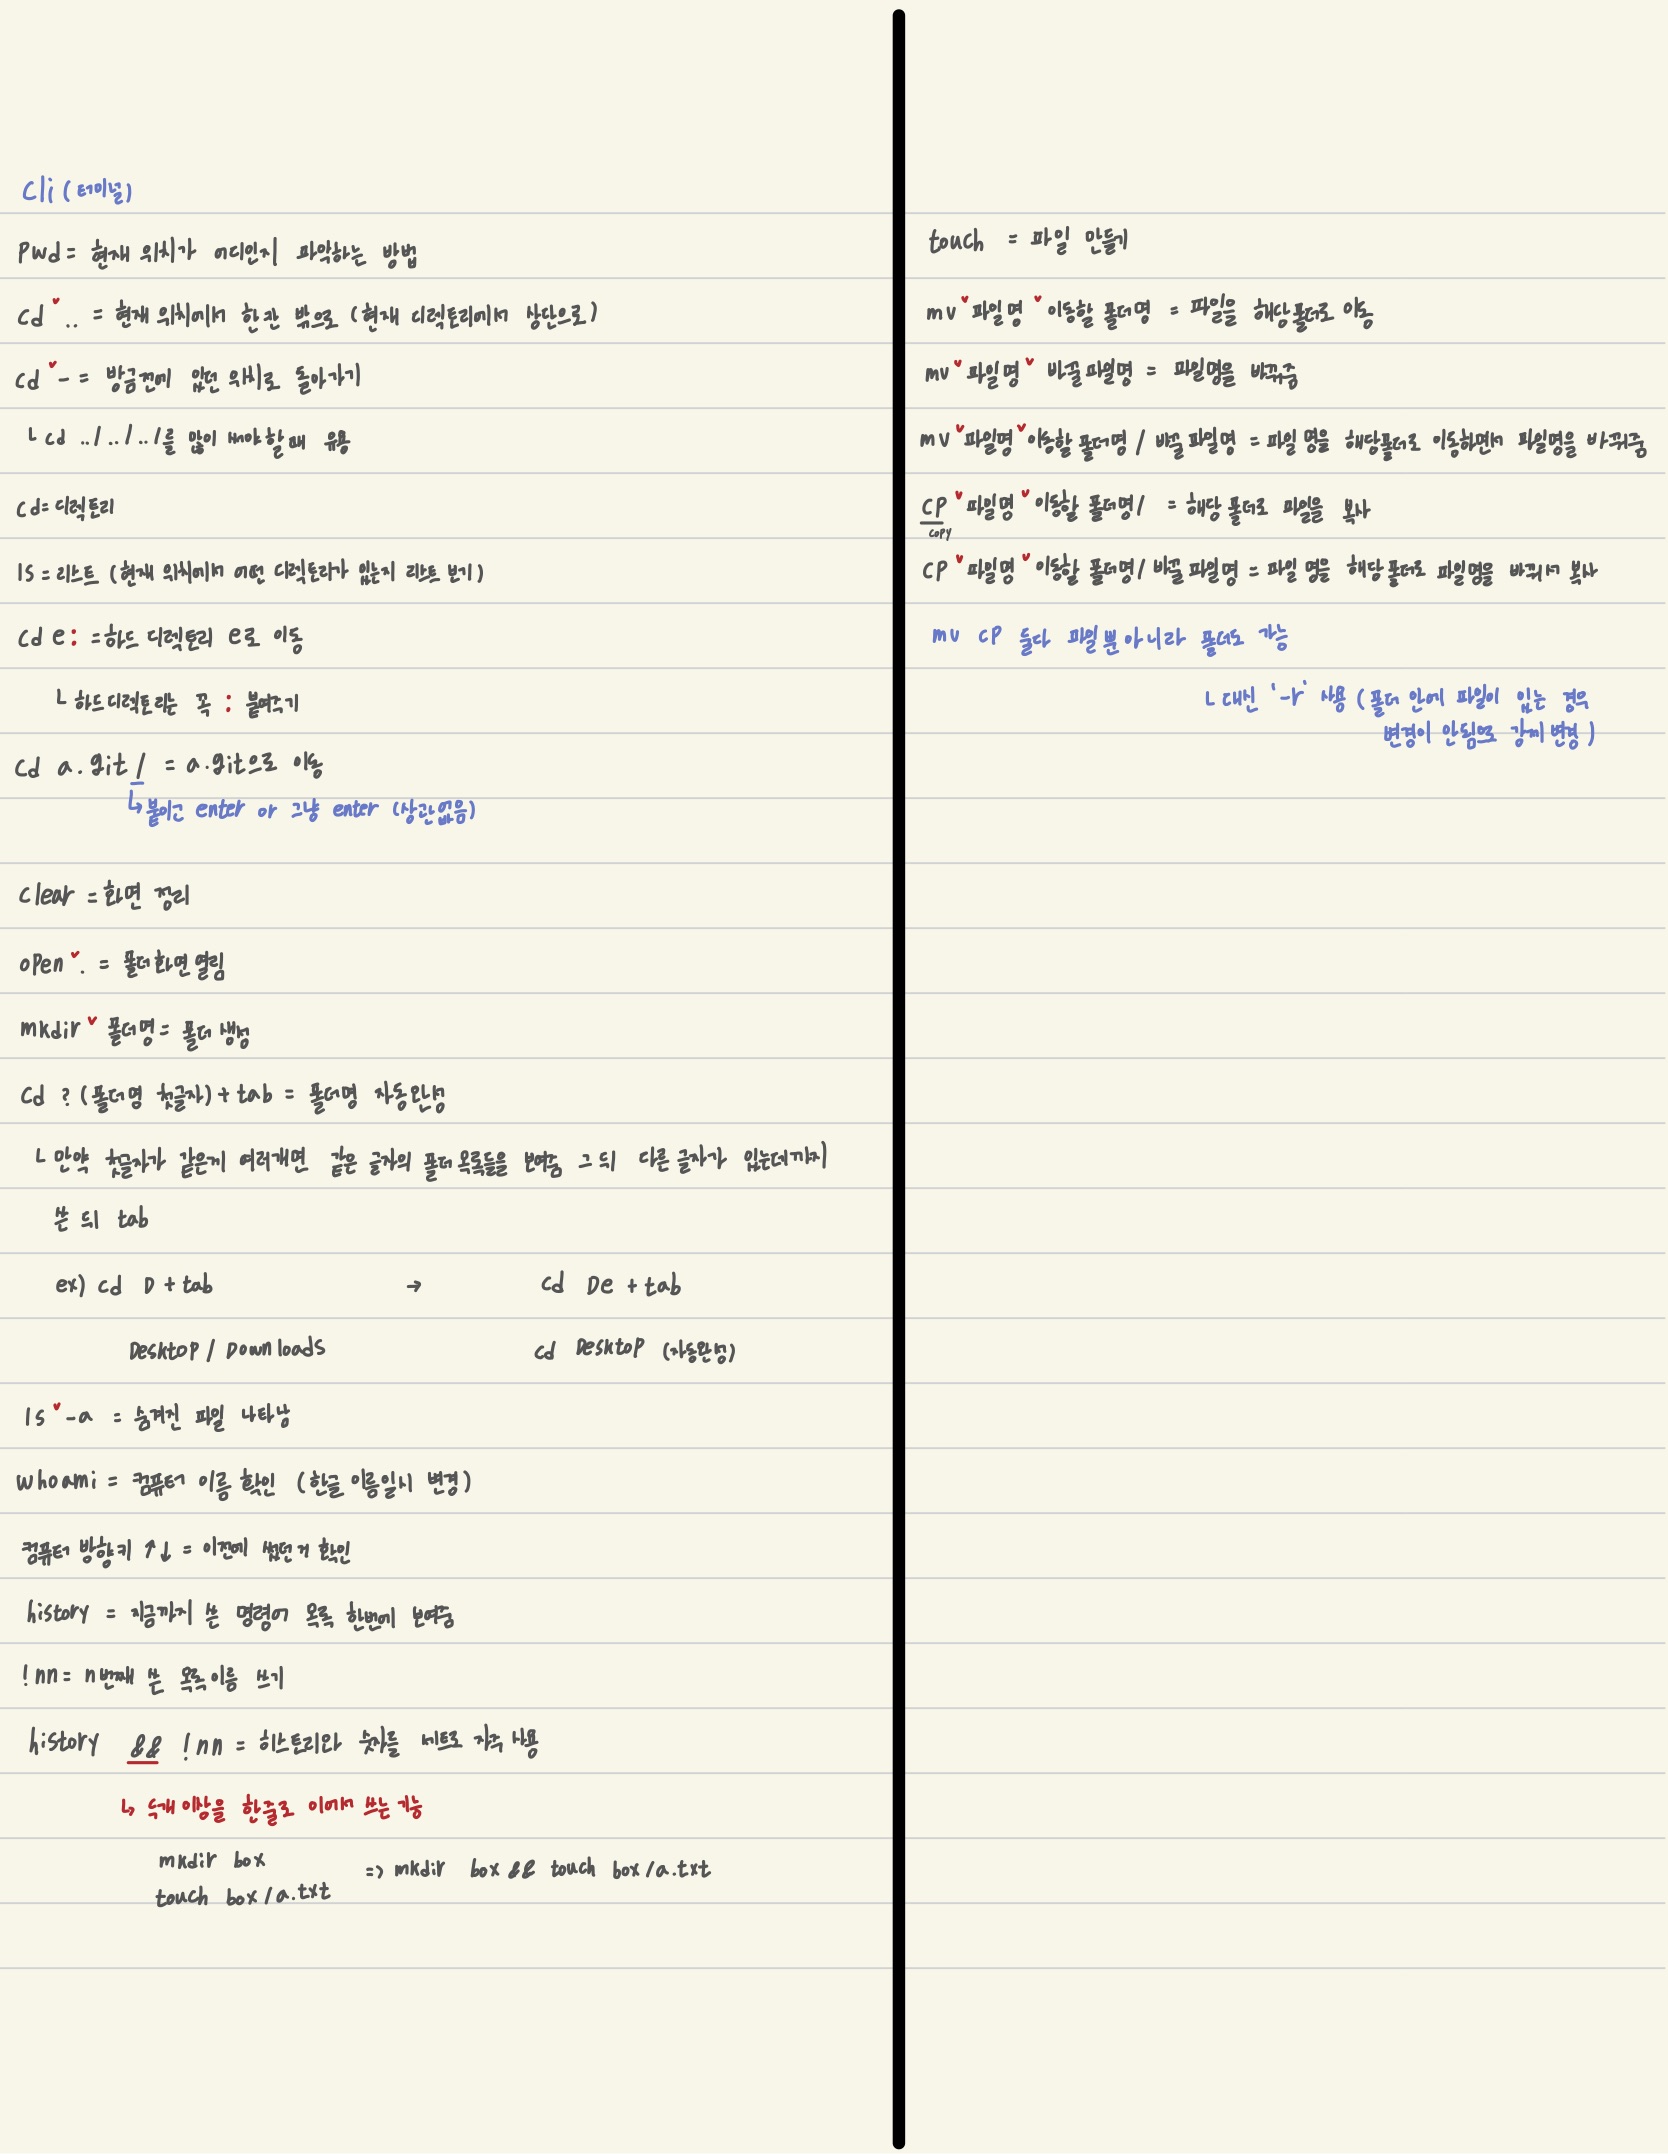 cli (터미널)
Pwd = 현재 위치가 어디인지 파악하는 방법
cd ˇ .. = 현재 위치에서 한칸 밖으로 (현재 디렉토리에서 상단으로)
cd ˇ - = 방금전에 있던 위치로 돌아가기
└ cd ../../../를 많이 써야할때 유용
cd = 디렉토리
ls = 리스트 (현재 위치에서 어떤 디렉토리가 있는지 리스트 보기)
cd e: = 하드 디렉토리 e로 이동
└ 하드디렉토리는 꼭 : 붙여주기
cd a.git/ = a.git으로 이동
↳ 붙이고 enter or 그냥 enter (상관없음)
clear = 화면 정리
open ˇ . = 폴더화면 열림
mkdir ˇ 폴더명 = 폴더 생성
cd ? (폴더명 첫글자) + tab = 폴더명 자동완성
└ 만약 첫글자가 같은게 여러개면 같은 글자의 폴더 목록들을 보여줌 그 뒤 다른 글자가 있는데까지
쓴 뒤 tab
ex) cd D + tab → cd De + tab
Desktop / Downloads cd Desktop (자동완성)
ls ˇ -a = 숨겨진 파일 나타남
whoami = 컴퓨터 이름 확인 (한글 이름일시 변경)
컴퓨터 방향키 ↑↓ = 이전에 썼던거 확인
history = 지금까지 쓴 명령어 목록 한번에 보여줌
!nn = n번째 쓴 목록이름 쓰기
history && !nn = 히스토리와 숫자를 세트로 자주 사용
↳ 두개 이상을 한줄로 이어서 쓰는 기능
mkdir box
touch box/a.txt => mkdir box && touch box/a.txt
touch = 파일 만들기
mv ˇ 파일명 ˇ 이동할 폴더명 = 파일을 해당폴더로 이동
mv ˇ 파일명 ˇ 바꿀 파일명 = 파일명을 바꿔줌
mv ˇ 파일명 ˇ 이동할 폴더명 / 바꿀 파일명 = 파일 명을 해당폴더로 이동하면서 파일명을 바꿔줌
CP ˇ 파일명 ˇ 이동할 폴더명/ = 해당 폴더로 파일을 복사
copy
CP ˇ 파일명 ˇ 이동할 폴더명/ 바꿀 파일명 = 파일 명을 해당 폴더로 파일명을 바꿔서 복사
mv CP 둘다 파일뿐아니라 폴더도 가능
└ 대신 '-r' 사용 (폴더 안에 파일이 있는 경우
변경이 안됨으로 강제 변경)